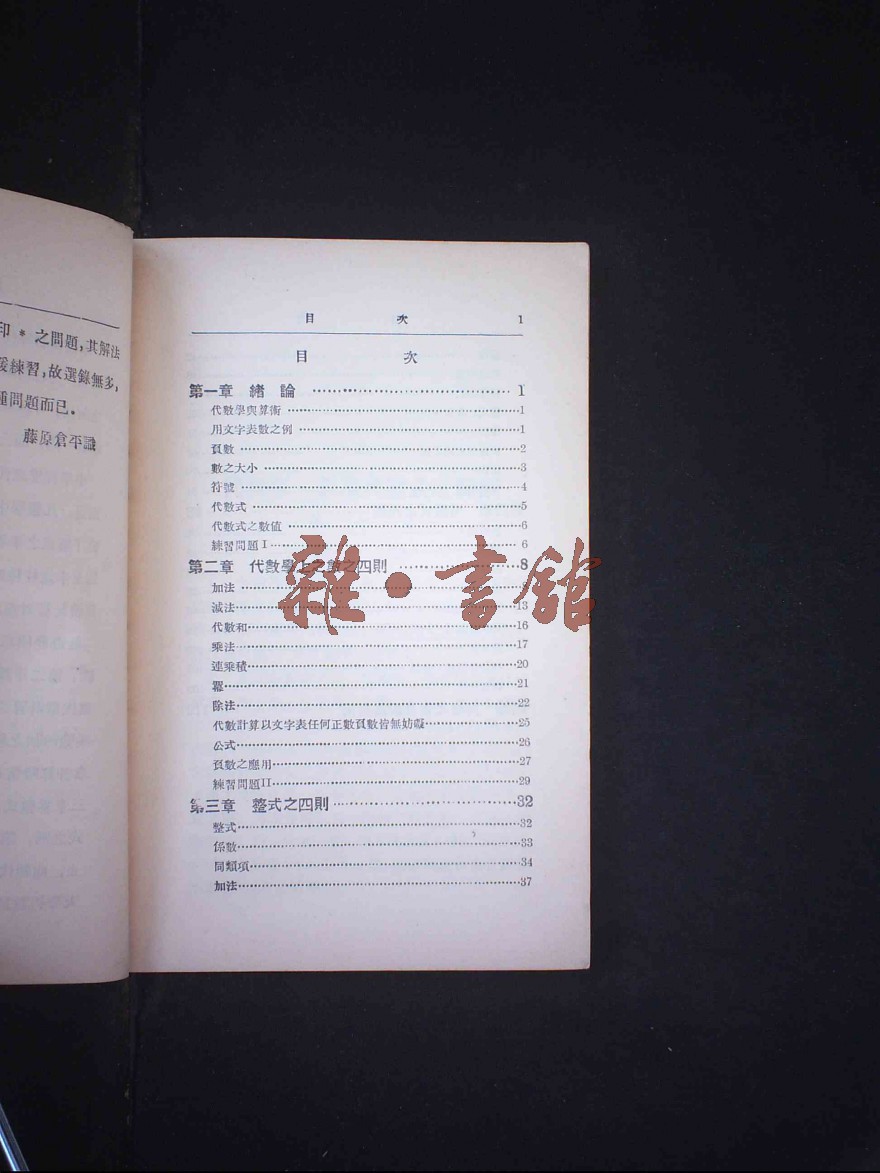 印 * 之問題,其解法
練習,故選錄無多,
種問題而已.
藤原倉平識
目 次 1
目 次
第一章 緒論 1
代數學與算術 1
用文字表數之例 1
負數 2
數之大小 3
符號 4
代數式 5
代數式之數值 6
練習問題 I 6
第二章 代數學上之數之四則 8
加法
減法 13
代數和 16
乘法 17
連乘積 20
羃 21
除法 22
代數計算以文字表任何正數負數皆無妨礙 25
公式 26
負數之應用 27
練習問題II 29
第三章 整式之四則 32
整式 32
係數 33
同類項 34
加法 37
雜·書館